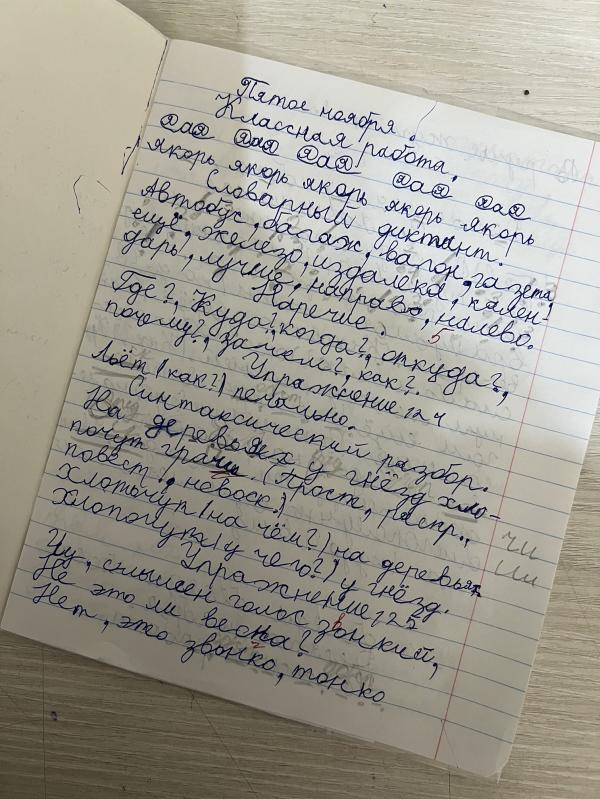 Пятое ноября.
Классная работа.
Яая Яая Яая Яая Яая
якорь якорь якорь якорь якорь
Словарный диктант.
Автобус, багаж, вагон, газета,
ещё, железо, издалека, кален-
дарь, лучше, направо, налево.
Наречие. 5
Где?, Куда?, когда?, откуда?,
почему?, зачем?, как?.
Упражнение 124
Льёт (как?) печально.
Синтаксический разбор.
На деревьях у гнёзд хло-
почут грачи. (Прост., распр.,
повест., невоск.)
Хлопочут (на чём?) на деревьях
Хлопочут (у чего?) у гнёзд.
чи
чи
Упражнение 125
Чу, слышен голос звонкий,
Не это ли весна?
Нет, это звонко, тонко